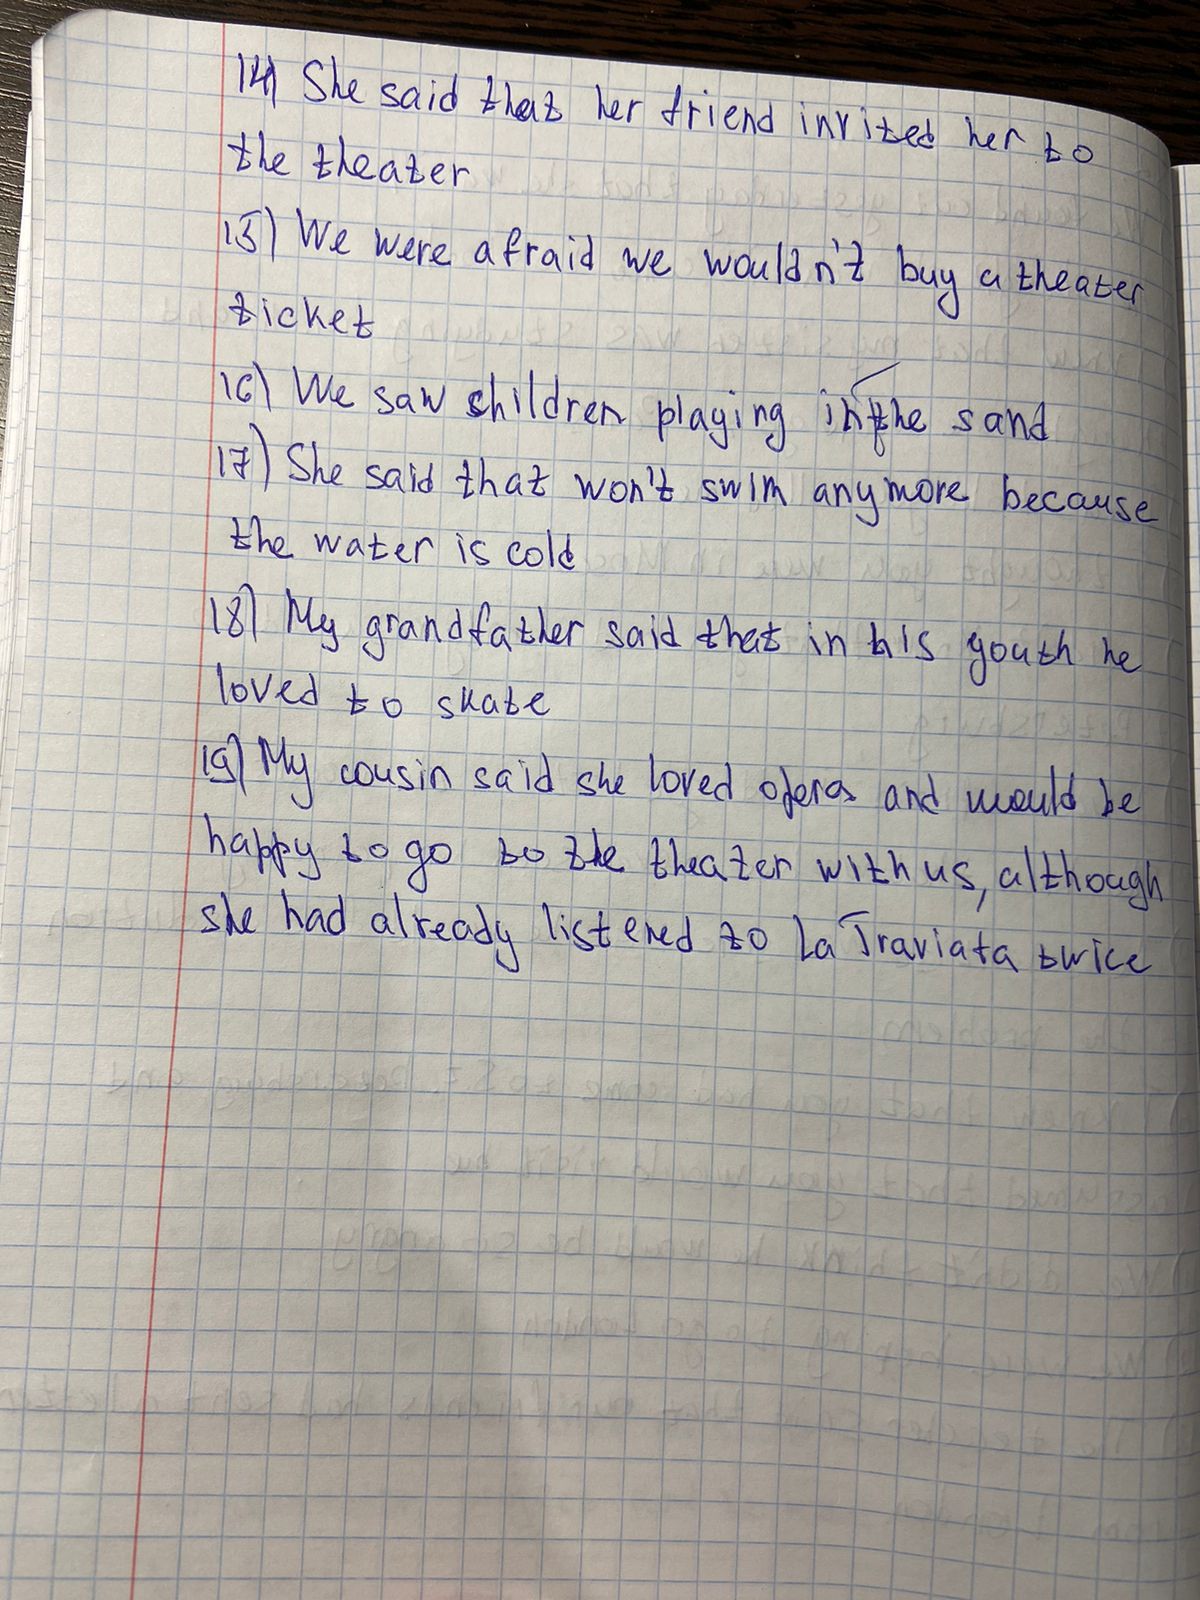 14) She said that her friend invited her to
the theater
15) We were afraid we wouldn't buy a theater
ticket
16) We saw children playing in the sand
17) She said that won't swim anymore because
the water is cold
18) My grandfather said that in his youth he
loved to skate
19) My cousin said she loved opera and would be
happy to go to the theater with us, although
she had already listened to La Traviata twice